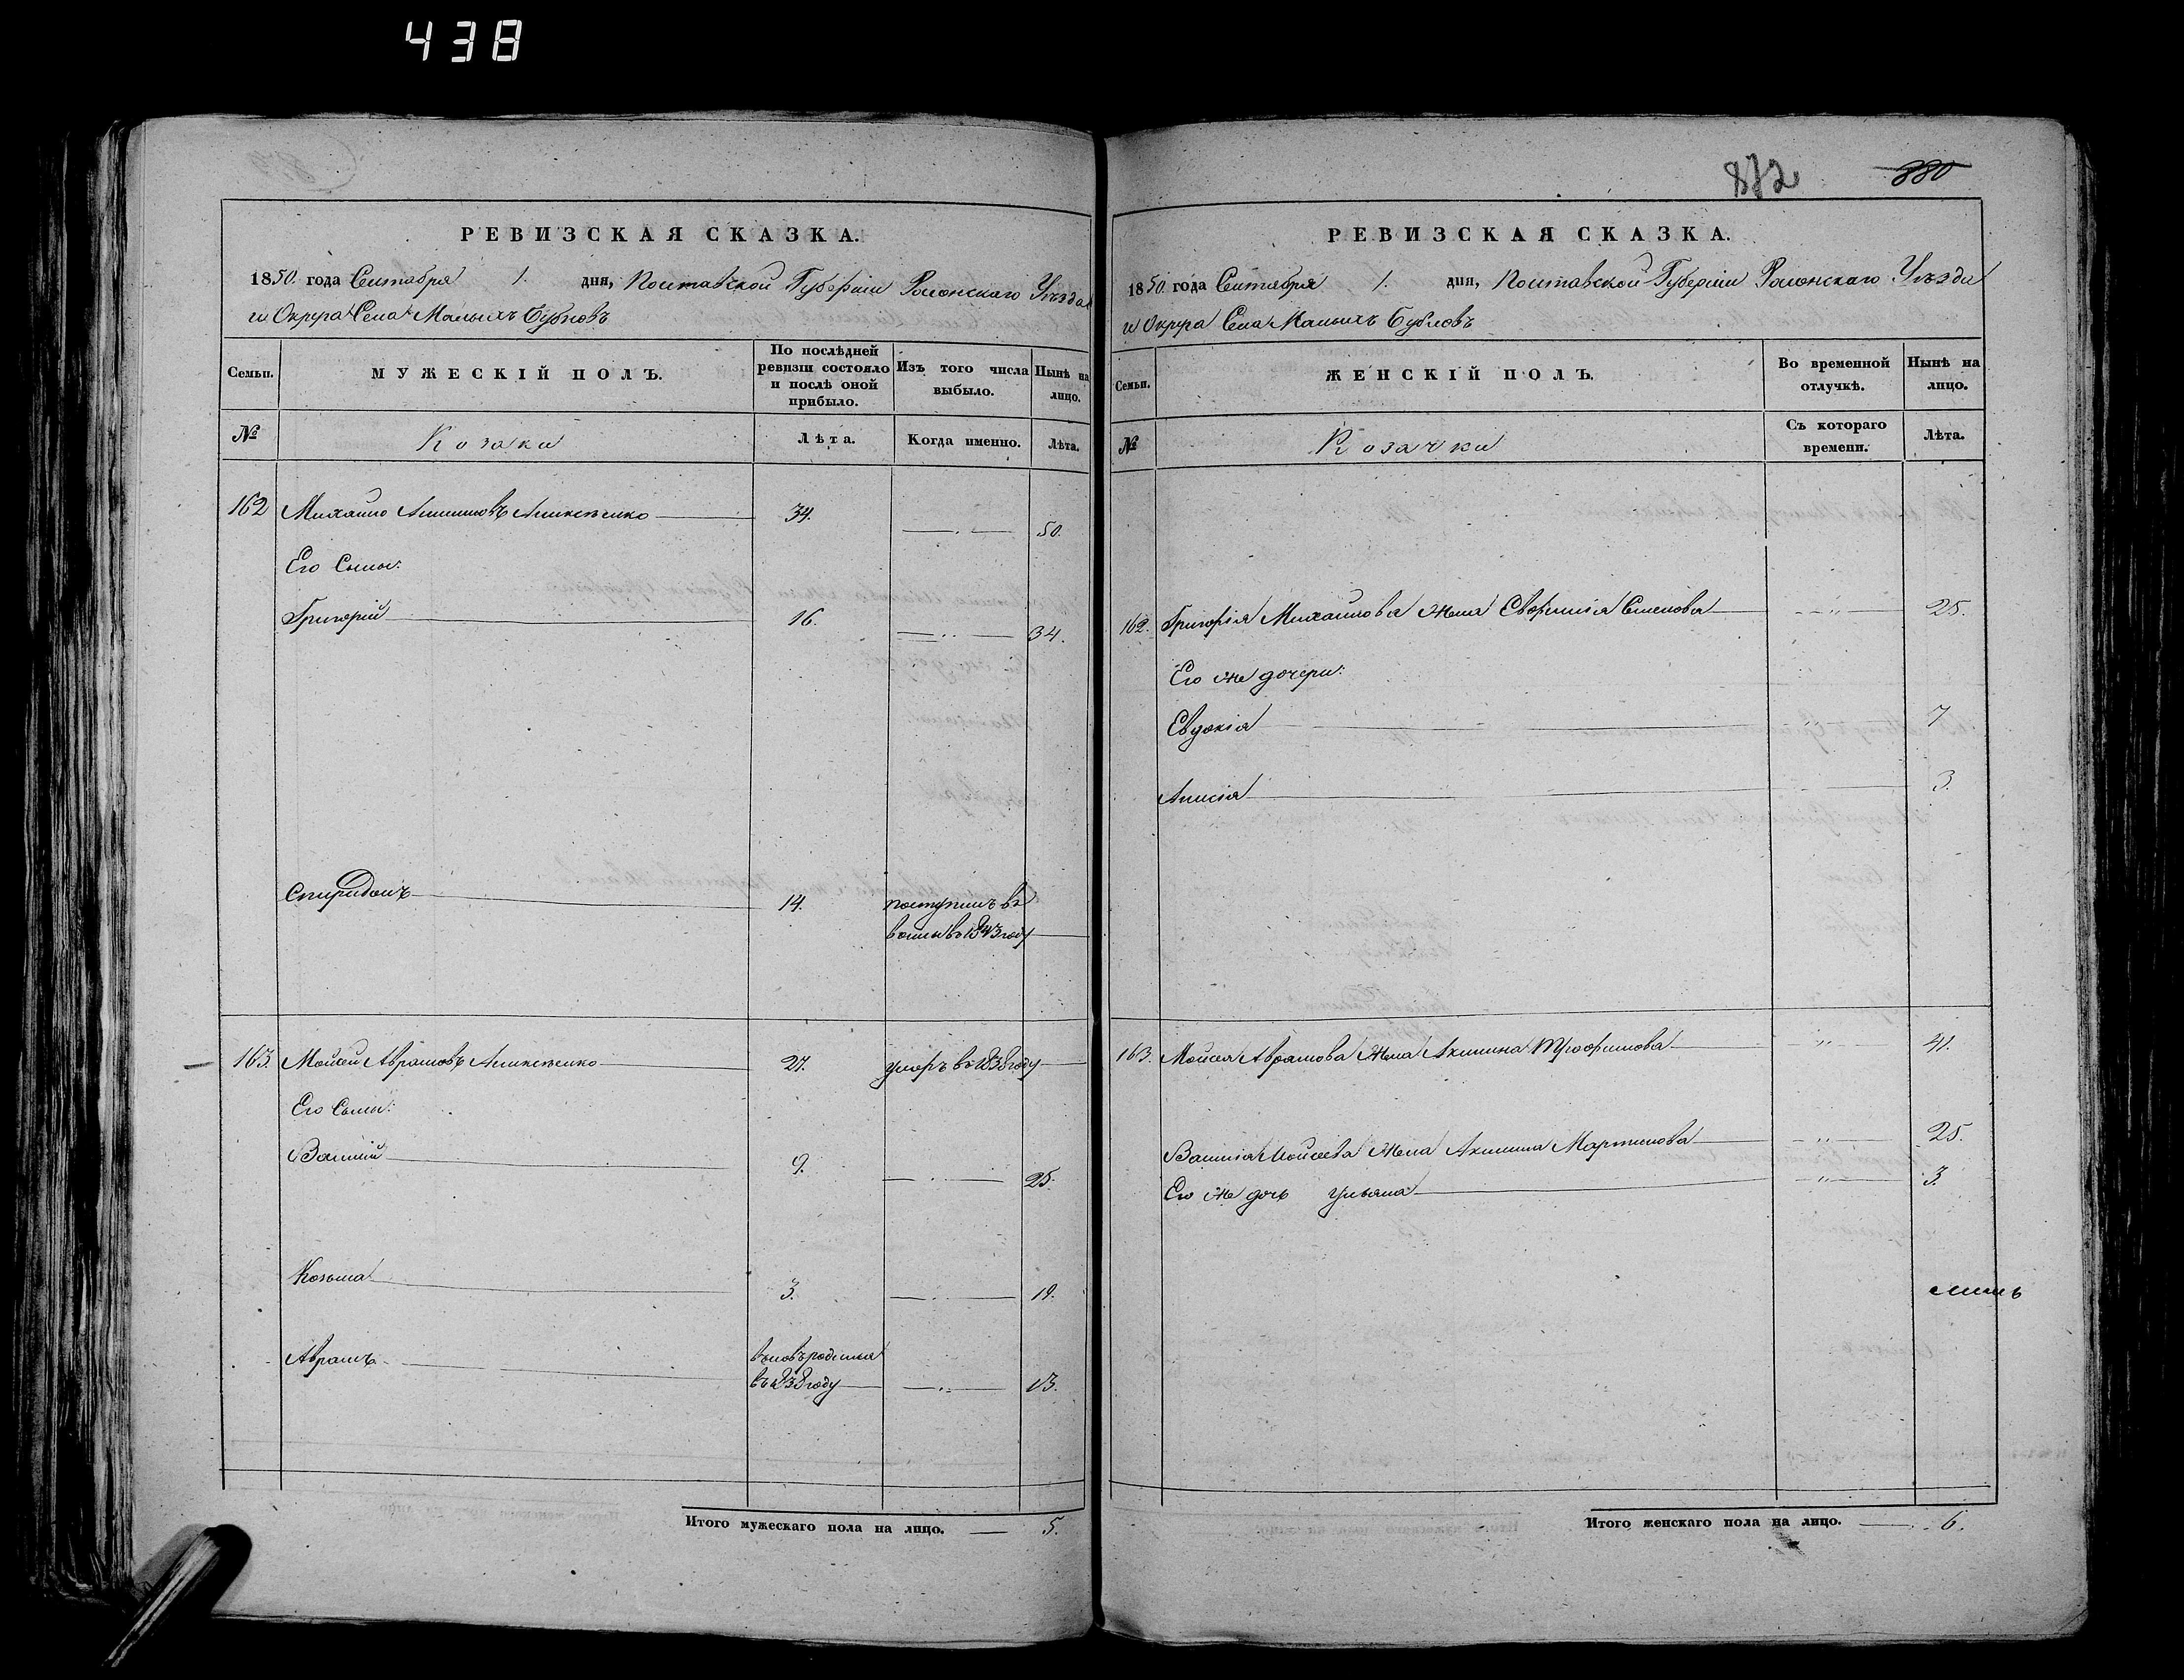 438
872 880
РЕВИЗСКАЯ СКАЗКА.
1850. года Сентября 1. дня, Полтавской Губерніи Роменскаго Уѣзда
и Округа Села Малыхъ Бубновъ
Семьи. МУЖЕСКІЙ ПОЛЪ. По послѣдней ревизіи состояло и послѣ оной прибыло. Изъ того числа выбыло. Нынѣ на лицо.
№ Козаки Лѣта. Когда именно. Лѣта.
162 Михайло 34. 50.
Его Сыны:
Григорій 16. 34.
Спиридонъ 14. поступилъ въ
въ 1843 году
163. Мойсей Аврамовъ 27. умеръ въ 1838 году
Его Сыны:
Василій 9. 25.
Козьма 3. 19.
Аврамъ вновь родился
въ 838 году 13.
Итого мужескаго пола на лицо. 5.
РЕВИЗСКАЯ СКАЗКА.
1850 года Сентября 1. дня, Полтавской Губерніи Роменскаго Уѣзда
и Округа Села Малыхъ Бубновъ
Семьи. ЖЕНСКІЙ ПОЛЪ. Во временной отлучкѣ. Нынѣ на лицо.
№ Козачки Съ котораго времени. Лѣта.
162. Григорія Михайлова жена Евфимія Семенова 25.
Его же дочери:
Евдокія 7
Анисія 3.
163. Мойсея Аврамова жена Акилина Трофимова 41.
Василія Мойсеева жена Акилина Мартинова 25.
Его же дочь Ульяна 3.
Итого женскаго пола на лицо. 6.